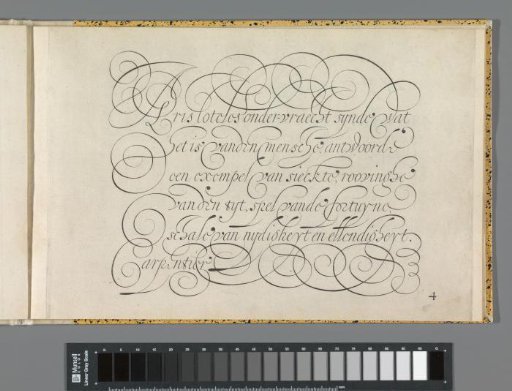 Aristoteles onder vraecht synde, Wat
het is vanden mensche: antwoorde
een exempel van sieckte, roovinghe
vanden tyt, spel vande fortuyne,
schale van nydigheyt en ellendigheyt.
Carpentier
4